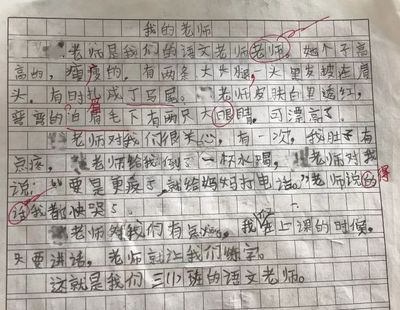 我的老师
老师是我们的语文老师老师。她个子高
高的,瘦瘦的,有两条大长腿,头发披在肩
头。有时扎成了马尾。老师皮肤白里透红,
弯弯的眉毛下有两只大眼睛,可漂亮了
老师对我们很关心,有一次,我肚子有
点疼,老师给我倒了一杯水喝,老师对我
说:"要是更疼了,就给妈妈打电话。"老师说的
话我都快哭了。
老师对我们有点,我在上课的时候,
讲话,老师就让我们练字。
这就是我们三(1)班的语文老师。
得